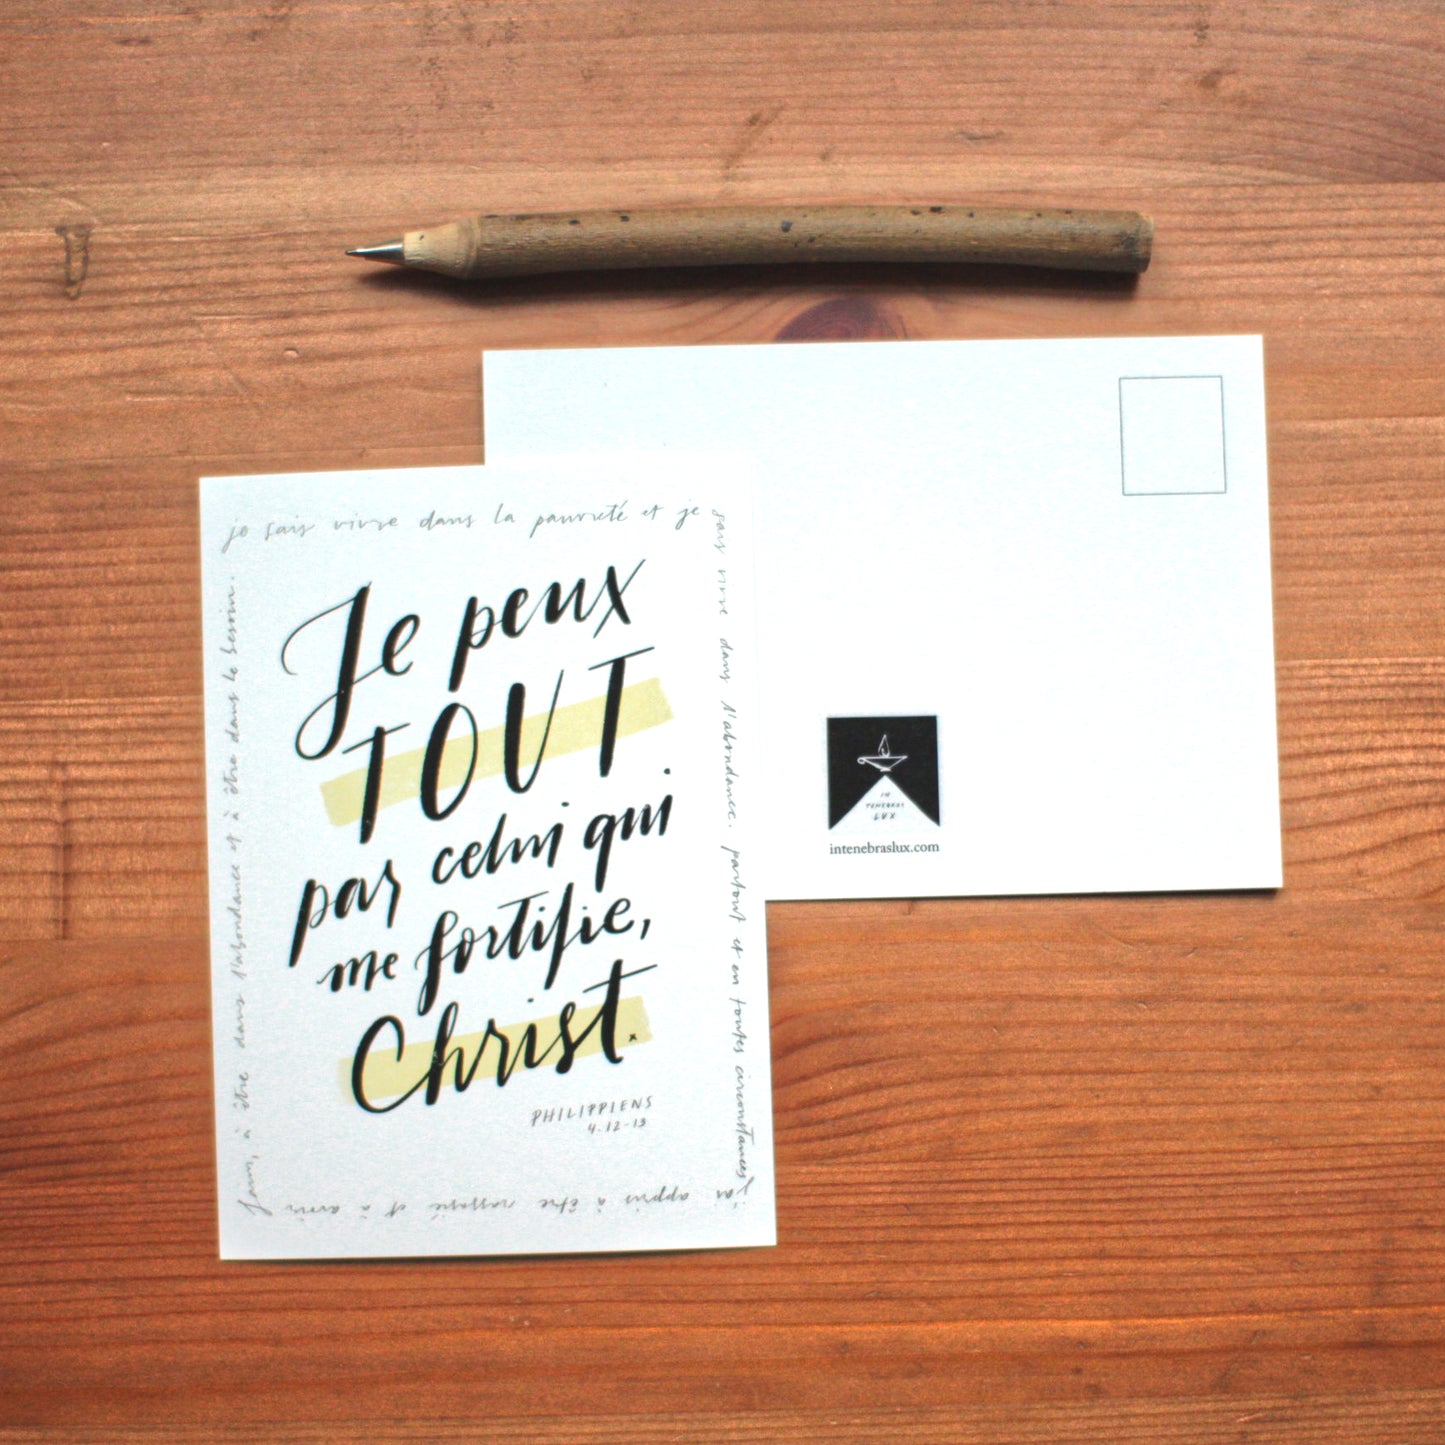 je sais vivre dans la pauvreté et je
sais vivre dans l'abondance. partout et en toutes circonstances
j'ai appris à être rassasié et à avoir
faim, à être dans l'abondance et à être dans le besoin.
Je peux
TOUT
par celui qui
me fortifie,
Christ.
PHILIPPIENS
4.12-13
IN
TENEBRAS
LUX
intenebraslux.com